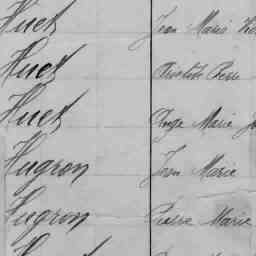 Huet Jean Marie
Huet Aristide Pierre
Huet Ange Marie
Hugron Jean Marie
Hugron Pierre Marie